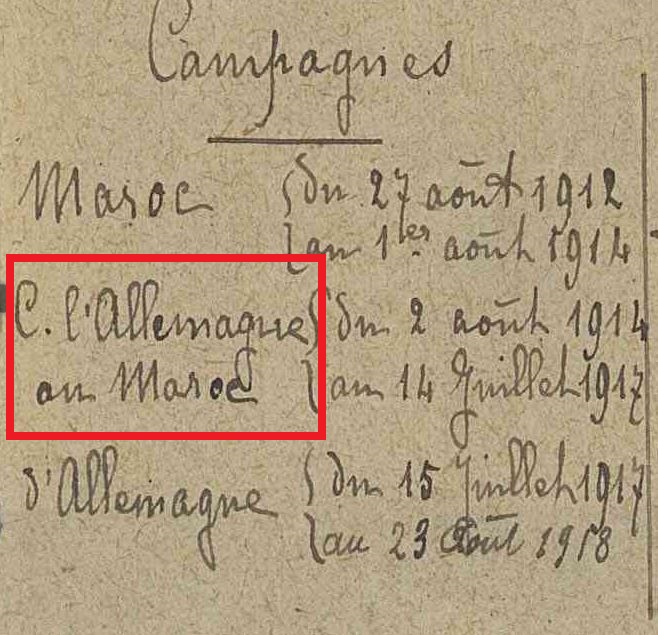 Campagnes
Maroc { du 27 août 1912
au 1er août 1914
C. l'Allemagne { du 2 août 1914
au Maroc } au 14 Juillet 1917
d'Allemagne { du 15 Juillet 1917
au 23 Août 1918